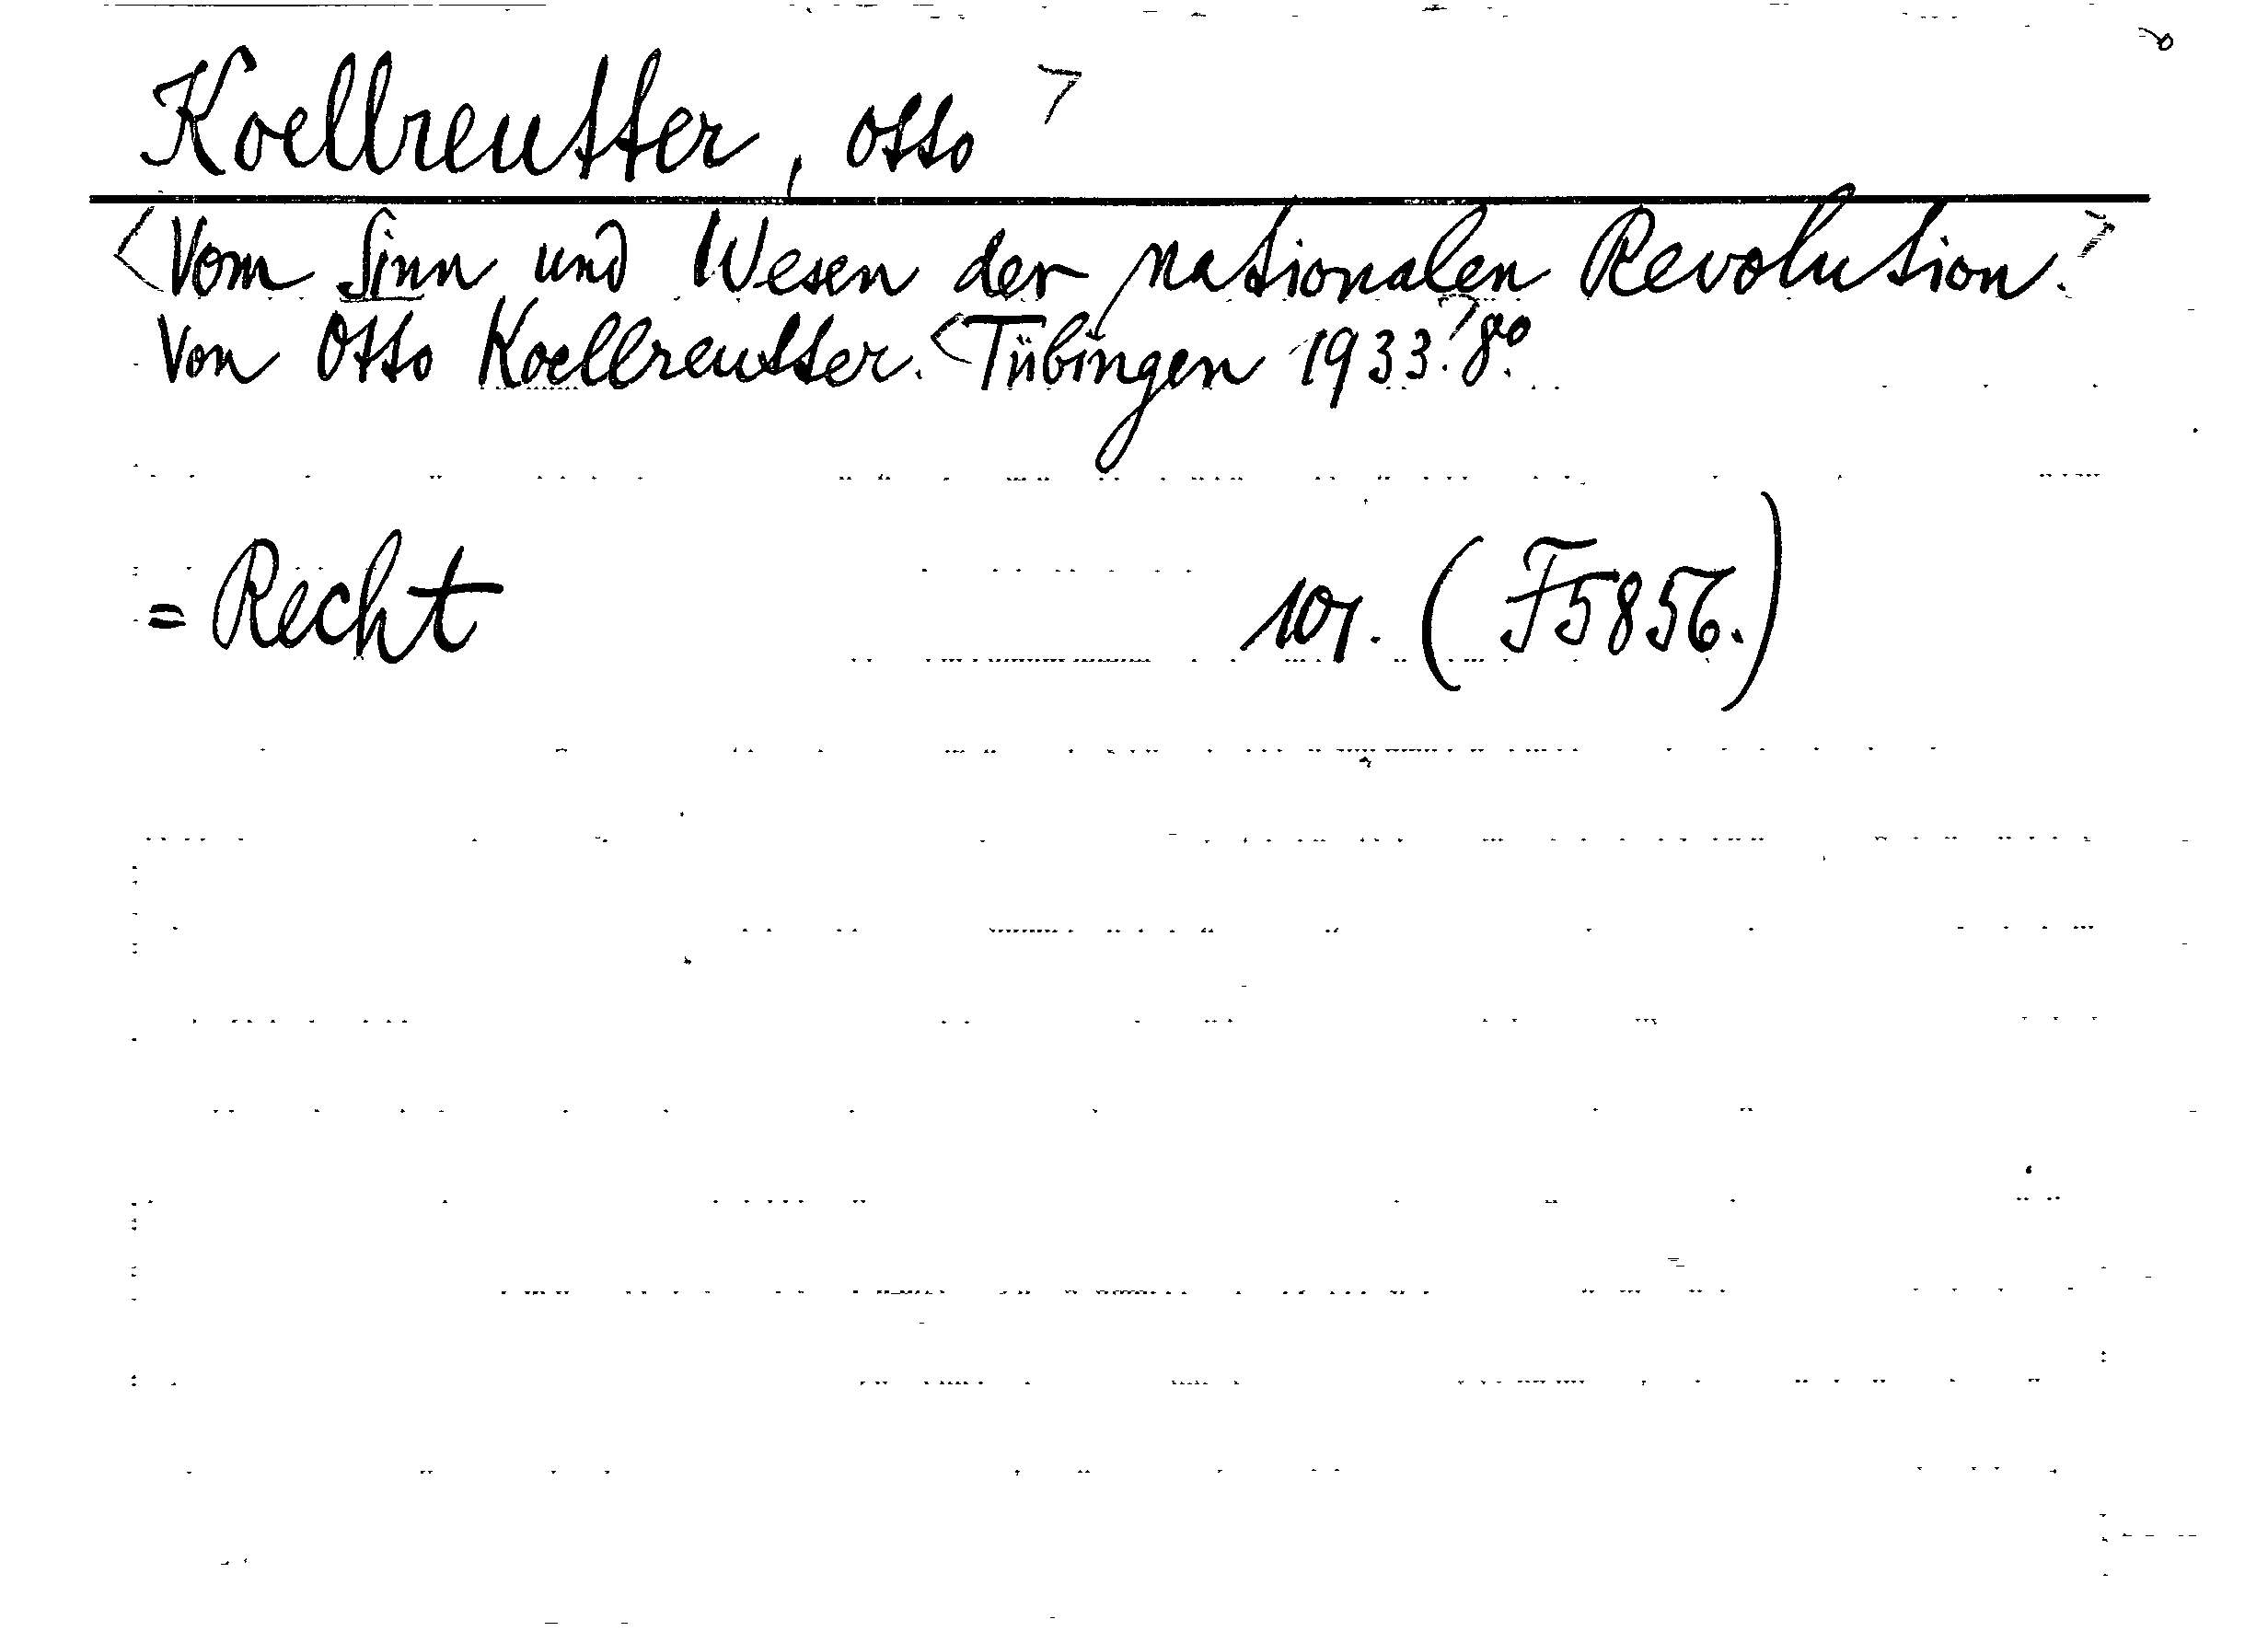 Koellreutter, Otto
Vom Sinn und Wesen der nationalen Revolution.
Von Otto Koellreutter. Tübingen 1933. 8°.
= Recht 101. (F5856.)